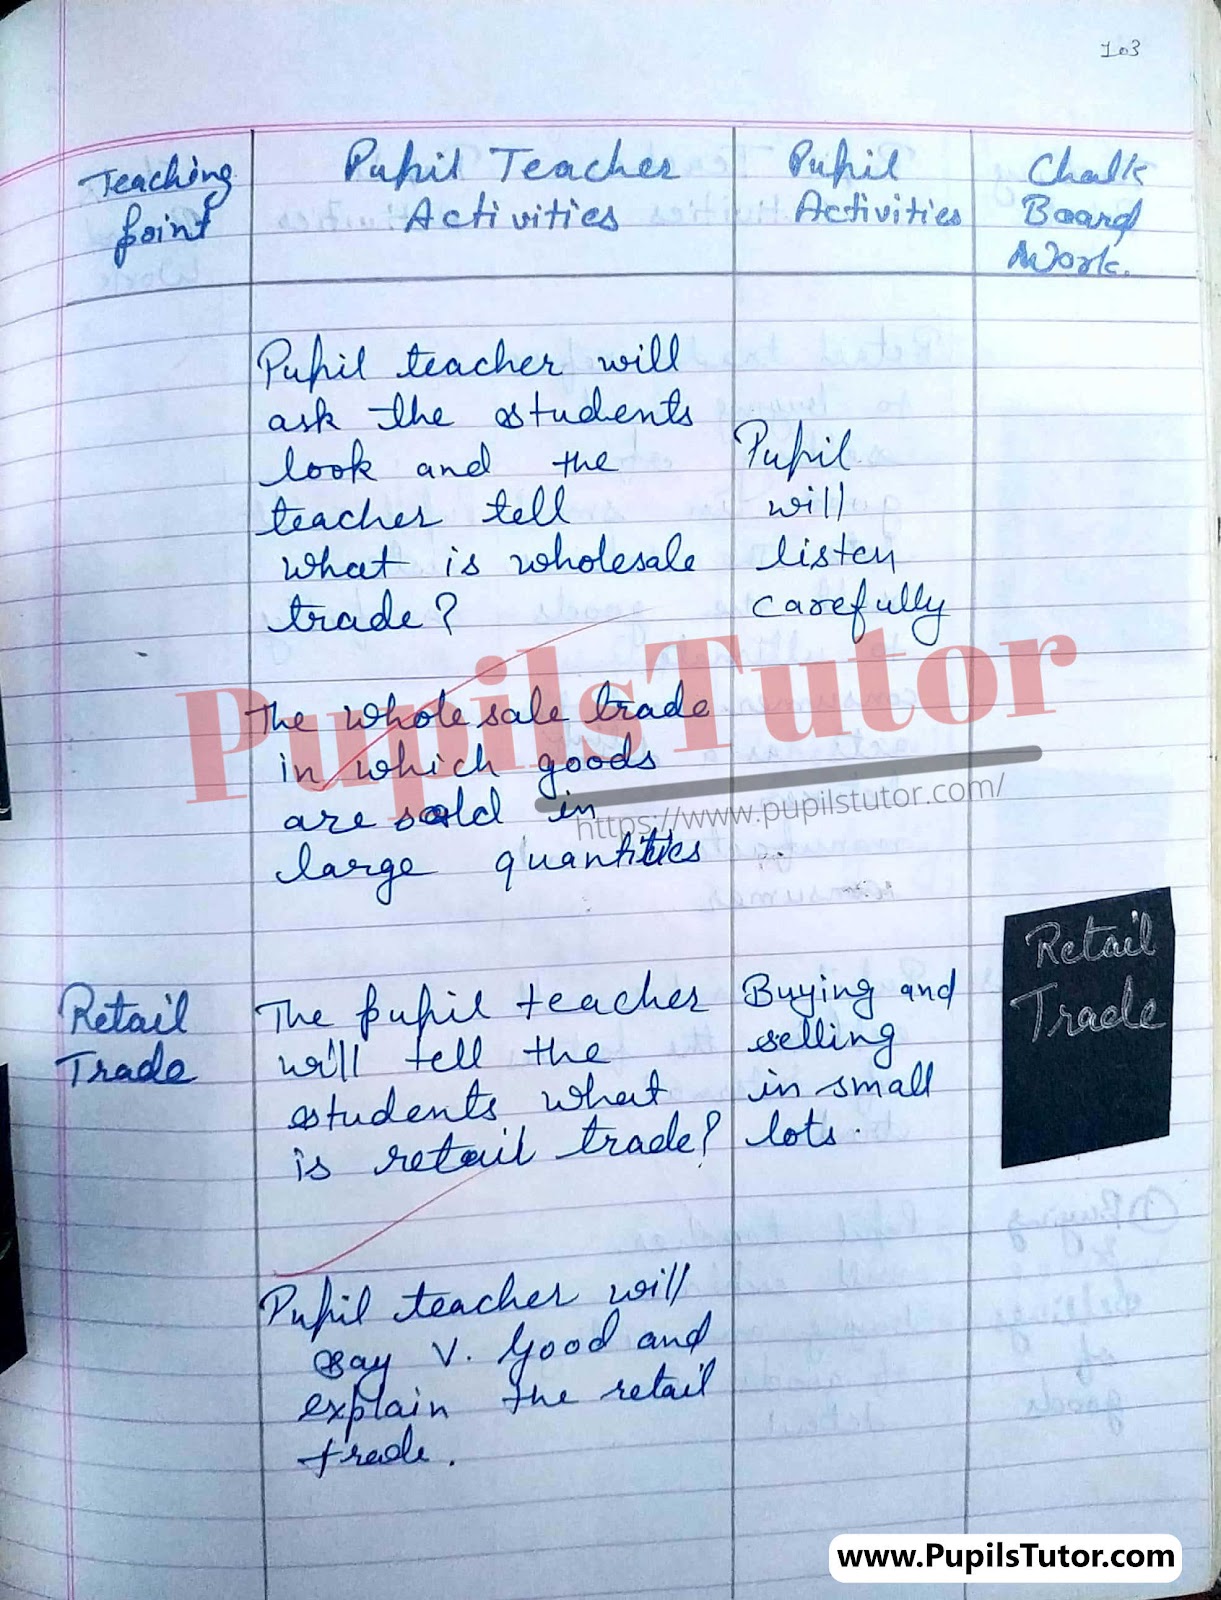 103
Teaching
point
Pupil Teacher
Activities
Pupil
Activities
Chalk
Board
Work.
Pupil teacher will
ask the students
look and the
teacher tell
what is wholesale
trade?
Pupil
will
listen
carefully
The whole sale trade
in which goods
are sold in
large quantities
PupilsTutor
https://www.pupilstutor.com/
Retail
Trade
The pupil teacher
will tell the
students what
is retail trade?
Buying and
selling
in small
lots.
Retail
Trade
Pupil teacher will
say V. Good and
explain the retail
trade.
www.PupilsTutor.com